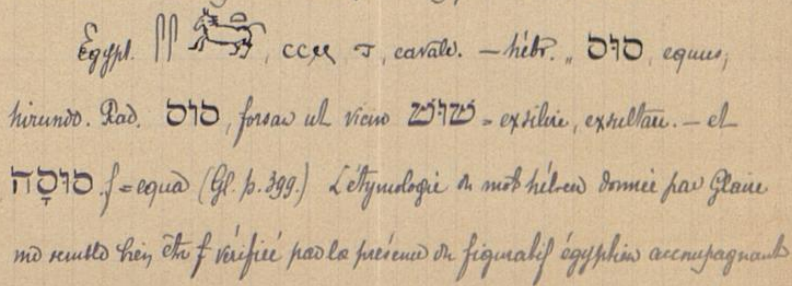 Égypt. 𓋴𓋴 , ⲥⲥⲙ, ⲧ, cavale. — hébr. „ סוּס, equus,
hirundo. Rad. סוּס, forsan ut vicino שׂוּשׂ = exsilire, exsultare. — et
סוּסָה. f = equa (Gl. p. 399.) L'étymologie du mot hébreu donnée par Glaire
me semble bien être vérifiée par la présence du figuratif égyptien accompagnant